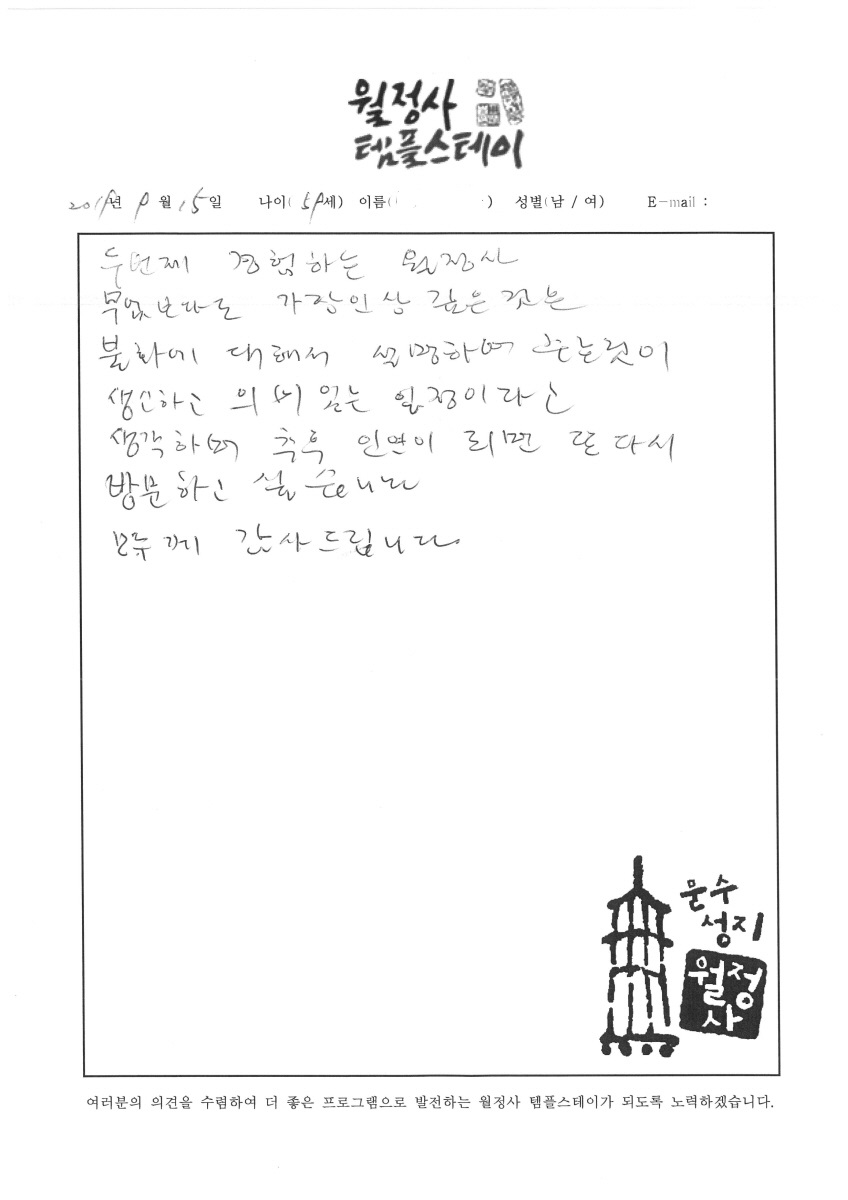 월정사
템플스테이
2019년 9월 15일 나이( 59세) 이름( ) 성별(남 / 여) E-mail :
두번째 경험하는 월정사
무엇보다도 가장인상 깊은 것은
불화에 대해서 설명하며 는것이
생소하고 의미 있는 일정이라고
생각하며 추후 인연이 되면 또 다시
방문하고 싶습니다
모두께 감사드립니다.
문수
성지
월정
사
여러분의 의견을 수렴하여 더 좋은 프로그램으로 발전하는 월정사 템플스테이가 되도록 노력하겠습니다.